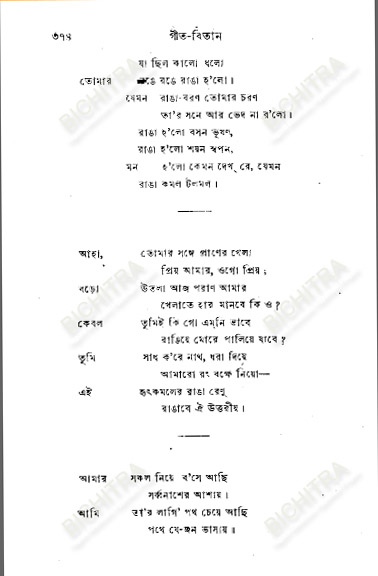 ৩৭৪ গীত-বিতান
যা ছিল কালো ধলো
তোমার রঙে রঙে রাঙা হ'লো।
যেমন রাঙা-বরণ তোমার চরণ
তা'র সনে আর ভেদ না র'লো।
রাঙা হ'লো বসন ভূষণ,
রাঙা হ'লো শয়ন স্বপন,
মন হ'লো কেমন দেখ্ রে, যেমন
রাঙা কমল টলমল।
আহা, তোমার সঙ্গে প্রাণের খেলা
প্রিয় আমার, ওগো প্রিয়;
বড়ো উতলা আজ পরাণ আমার
খেলাতে হার মানবে কি ও?
কেবল তুমিই কি গো এম্‌নি ভাবে
রাঙিয়ে মোরে পালিয়ে যাবে?
তুমি সাধ ক'রে নাথ, ধরা দিয়ে
আমারো রং বক্ষে নিয়ো—
এই হৃৎকমলের রাঙা রেণু
রাঙাবে ঐ উত্তরীয়।
আমার সকল নিয়ে ব'সে আছি
সর্ব্বনাশের আশায়।
আমি তা'র লাগি' পথ চেয়ে আছি
পথে যে-জন ভাসায়॥
BICHITRA
BICHITRA
BICHITRA
BICHITRA
BICHITRA
BICHITRA